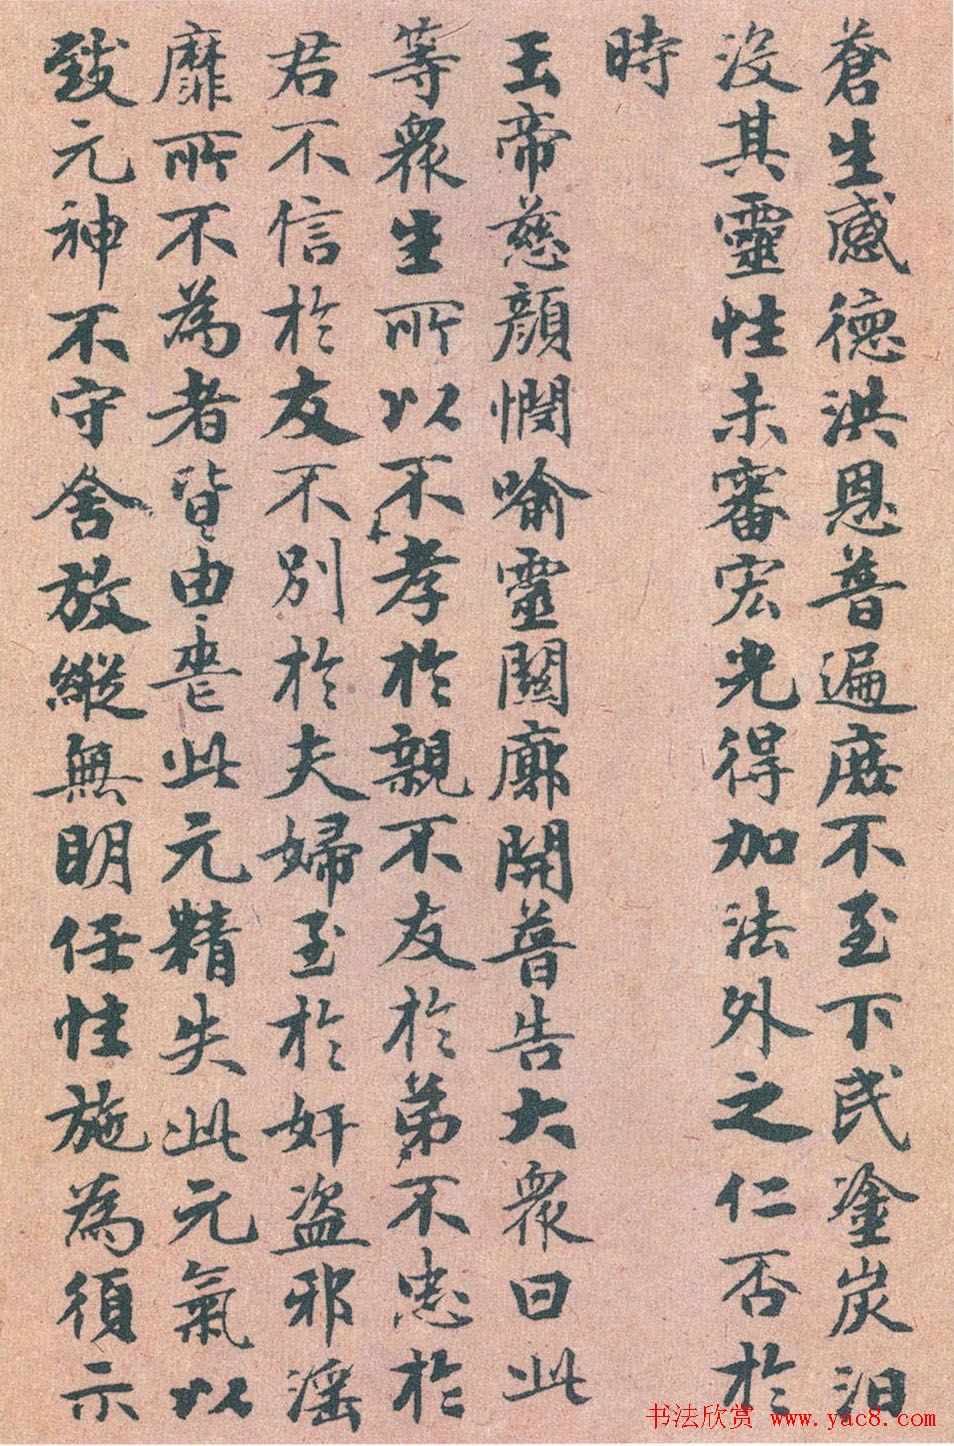 蒼生感德洪恩普遍庶不至下民塗炭汩
沒其靈性未審宏光得加法外之仁否於
時
玉帝慈顏憫喻靈關廓開普告大眾曰此
等眾生所以不孝於親不友於弟不忠於
君不信於友不別於夫婦至於奸盜邪淫
靡所不為者皆由喪此元精失此元氣以
致元神不守舍放縱無明任性施為須示
书法欣赏 www.yac8.com